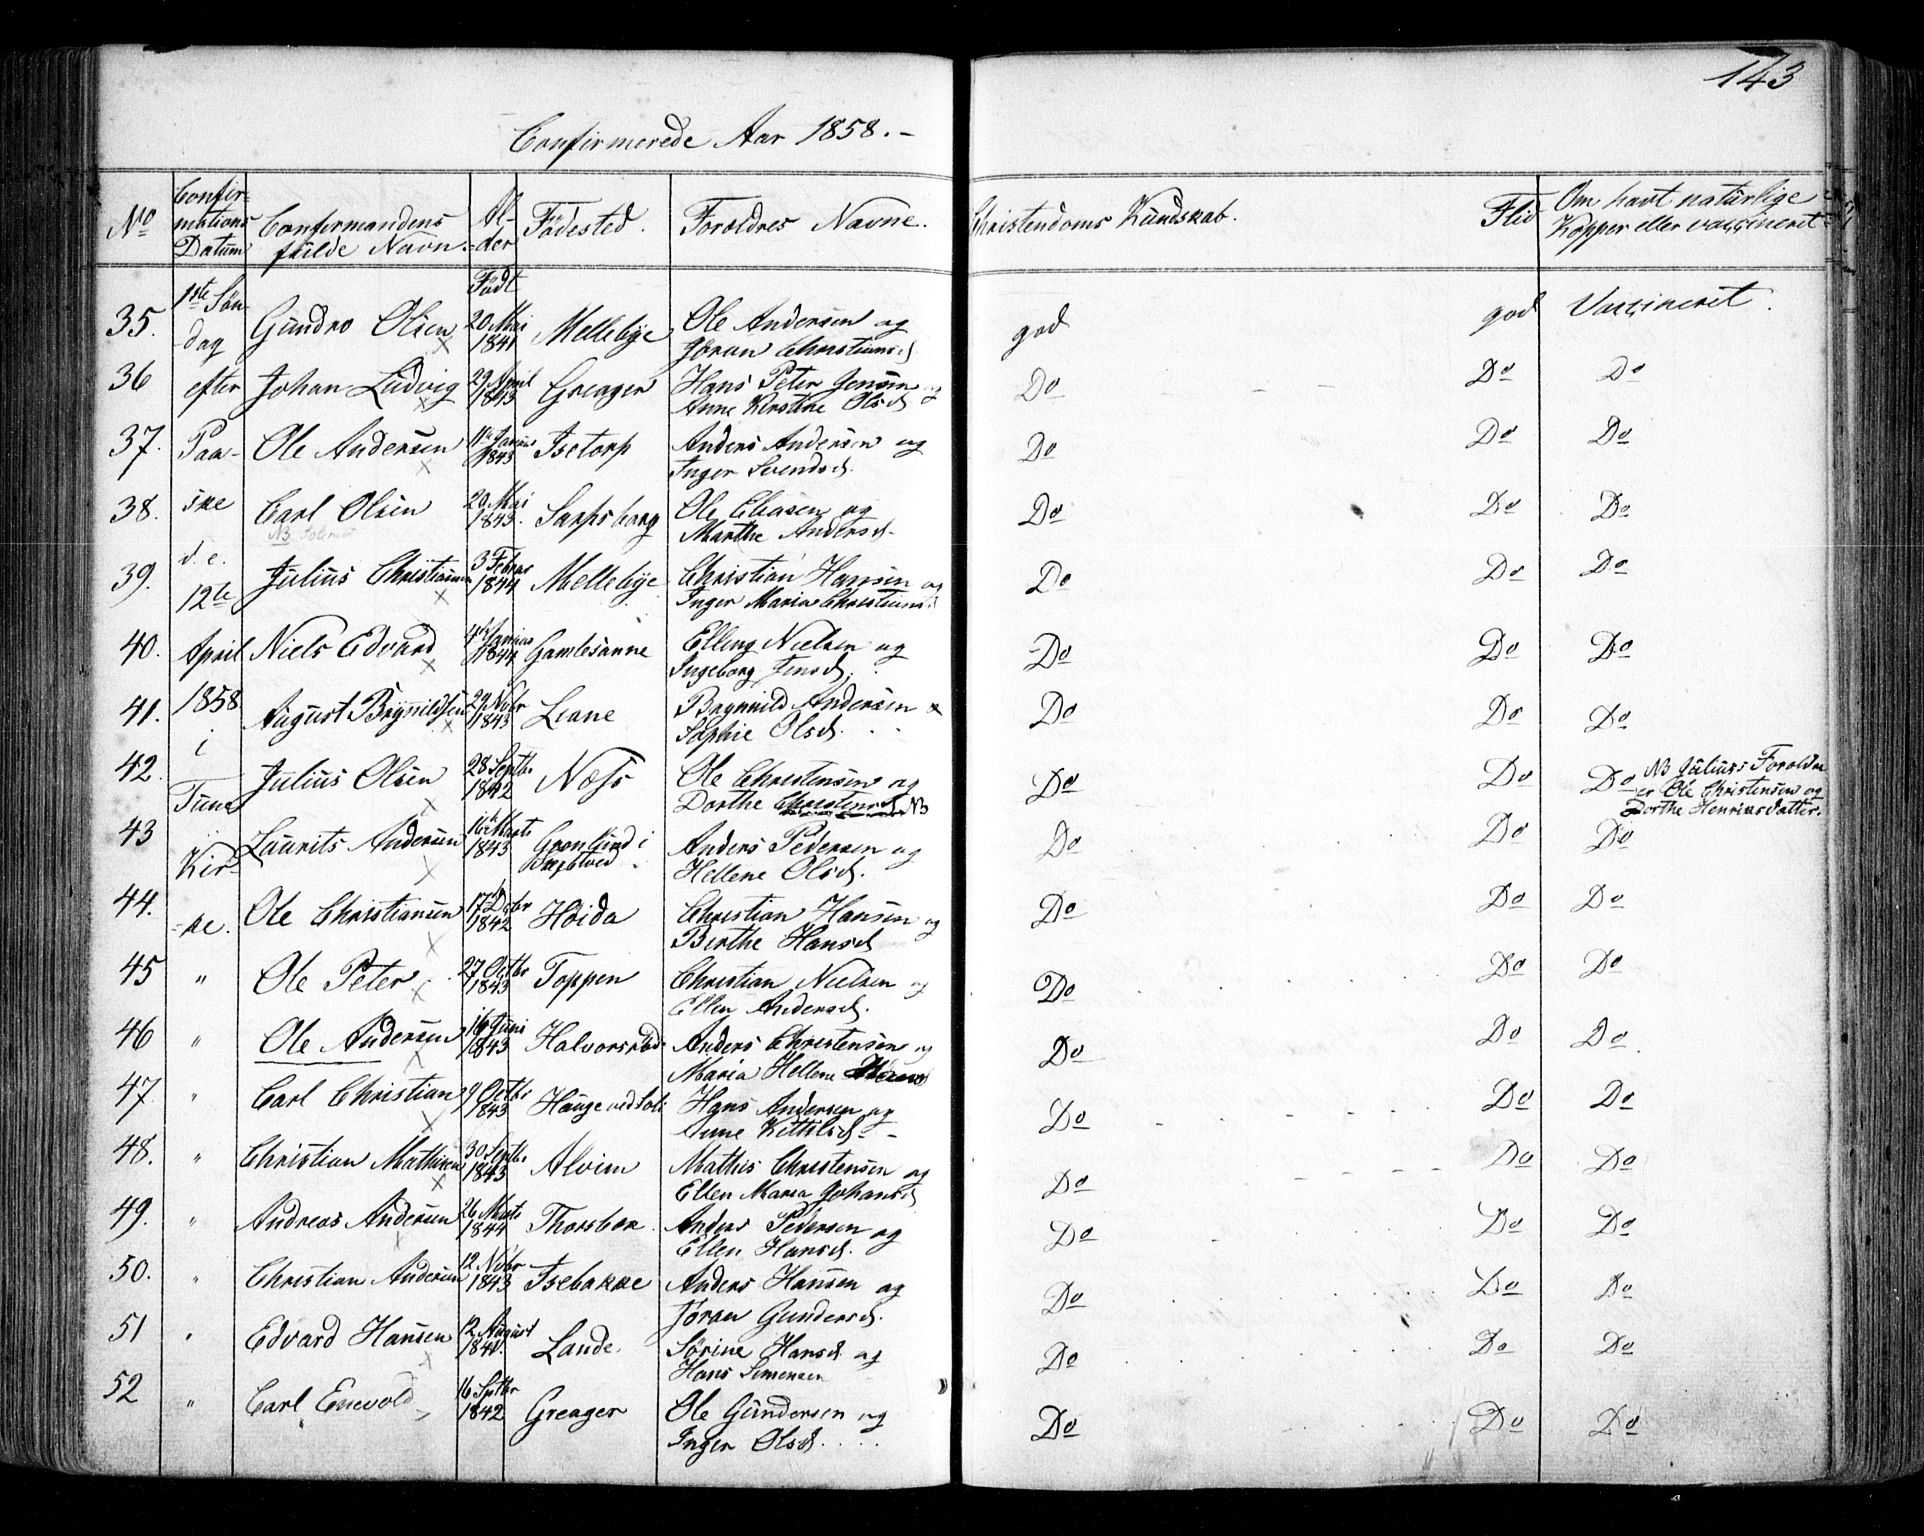 143
Confirmerede Aar 1858.-
No
Confir-
mations
Datum
Confirmandens
fulde Navn.
Al-
der
Födested.
Foroldres Navne.
Christendoms Kundskab.
Flid
Om havt natürlige
Kopper eller vaccineret
Födt
35. 1ste Sön- Gundro Olsen 20 Mai Mellebye Ole Andersen og god god Vaccineret.
dag 1841 Joran Christiansd
36 efter Johan Ludvig 29 April Greager Hans Peter Jensen og Do - - Do Do
1843 Anne Kirstine Olsd
37. Paa- Ole Andersen 11te Isetorp Anders Andersen og Do Do Do
1843 Inger Svendsd.
38. ske Carl Olsen 20 Mai Sarpsborg Ole Eliasen og Do Do Do
NB 1843. Marthe Andersd.
39. d. e. Julius Christiansen 3 Febr Mellebye Christian Hansen og Do Do Do
12te 1844 Inger Maria Christians
40. April Niels Edvard 4de Gamlesanne Elling Nielsen og Do Do Do
1844 Ingeborg Jensd.
41. 1858 August Brynildsen 29 Nobr Leane Brynnild Andersen Do Do Do
1843 Sophie Olsd. . .
42. i Julius Olsen 28 Septbr Næss Ole Christensen og Do Do Do NB Juliuss Foroldre
Tune 1842 Dorthe Christensd NB er Ole Christensen og
Dorthe Henriksdatter.
43 Kir- Laurits Andersen 16 Marts Gronlund i Anders Pedersen og Do Do Do
1843 Hellene Olsd.
44. -ke. Ole Christiansen 17 Decbr Höida Christian Hansen og Do Do Do
1842 Berthe Hansd
45 " Ole Peter 27 Octbr Toppen Christian Nielsen og Do Do Do
1843 Ellen Andersd.
46 " Ole Andersen 16 Juni Halvorsrød Anders Christensen og Do Do Do
1843 Maria Hellene
47 " Carl Christian 9 Octbr Hauge ved Soli Hans Andersen og Do Do Do
1843 Anne Kittilsd -
48. " Christian Mathisen 30 Septbr Alvim Mathis Christensen og Do Do Do
1843 Ellen Maria Johansd
49. " Andreas Andersen 26 Marts Thorsbek Anders Pedersen og Do Do Do
1844 Ellen Hansd.
50. " Christian Andersen 12 Nobr Isebakke Anders Hansen og Do Do Do
1843 Joran Gundersd.
51 " Edvard Hansen 12 August Lande. Sörine Hansd. og Do Do Do
Hans Simensen
52 " Carl Enevold 16 Septbr Greager Ole Gundersen og Do Do Do
1842 Inger Olsd. . . .